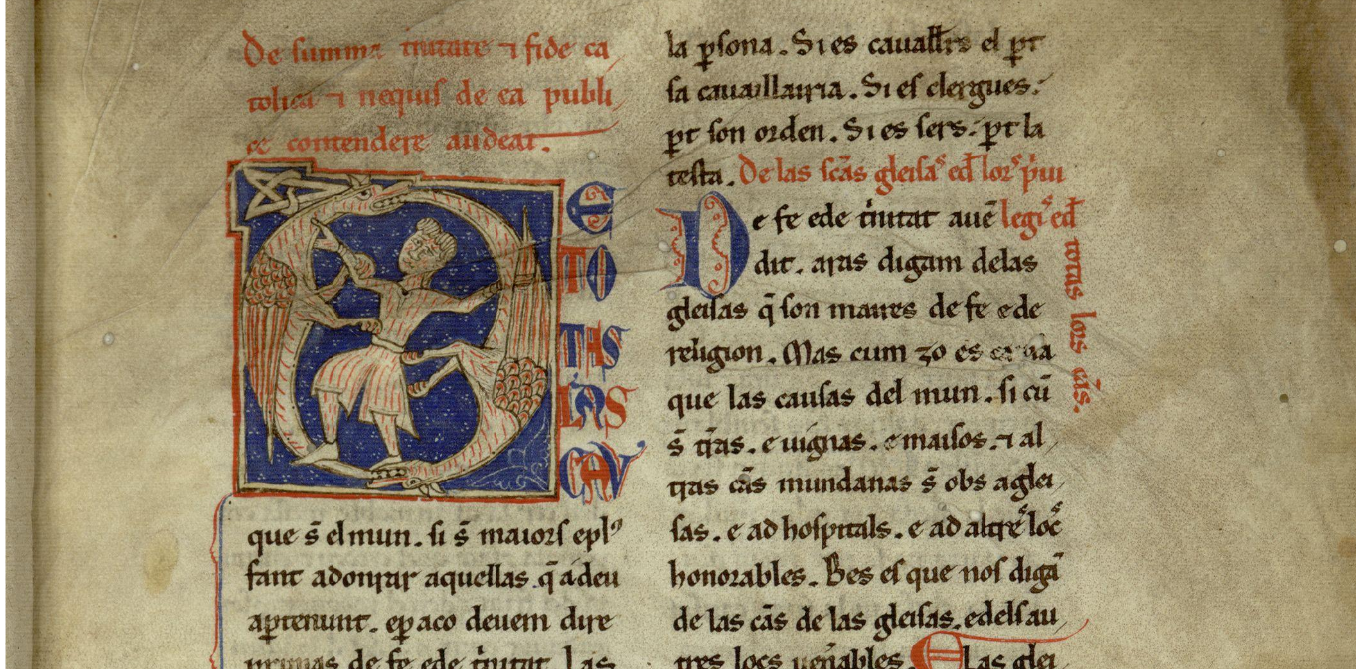 De summa trinitate ⁊ fide ca
tolica ⁊ nequis de ea publi
ce contendere audeat.
DE
TO
TAS
LAS
CAV
que s̄ el mun. si s̄ maiors epl᾽
fant adonrar aquellas. q̄ a deu
aꝑtenunt. eꝑ aco deuem dire
primas de fe ede t̄nitat. las
la ꝑsona. Si es cauall̄rs el ꝑt
sa cauaillairia. Si es clergues.
ꝑt son orden. Si es sers. ꝑt la
testa. De las sc̄as gleisas ed̄ lor᾽ p̄ui
legi᾽ ed̄
totas lors cās.
De fe ede t̄initat auē
dit. aras digam delas
gleisas q̄ son maires de fe e de
religion. Mas cum zo es
que las causas del mun. si cū
s̄ t̄ras. e uignas. e maisos. ⁊ al
tras cās mundanas s̄ obs a glei
sas. e ad hospitals. e ad altres locs
honorables. Bes es que nos digā
de las cās de las gleisas. edels au
tres locs uen̄ables. E las glei